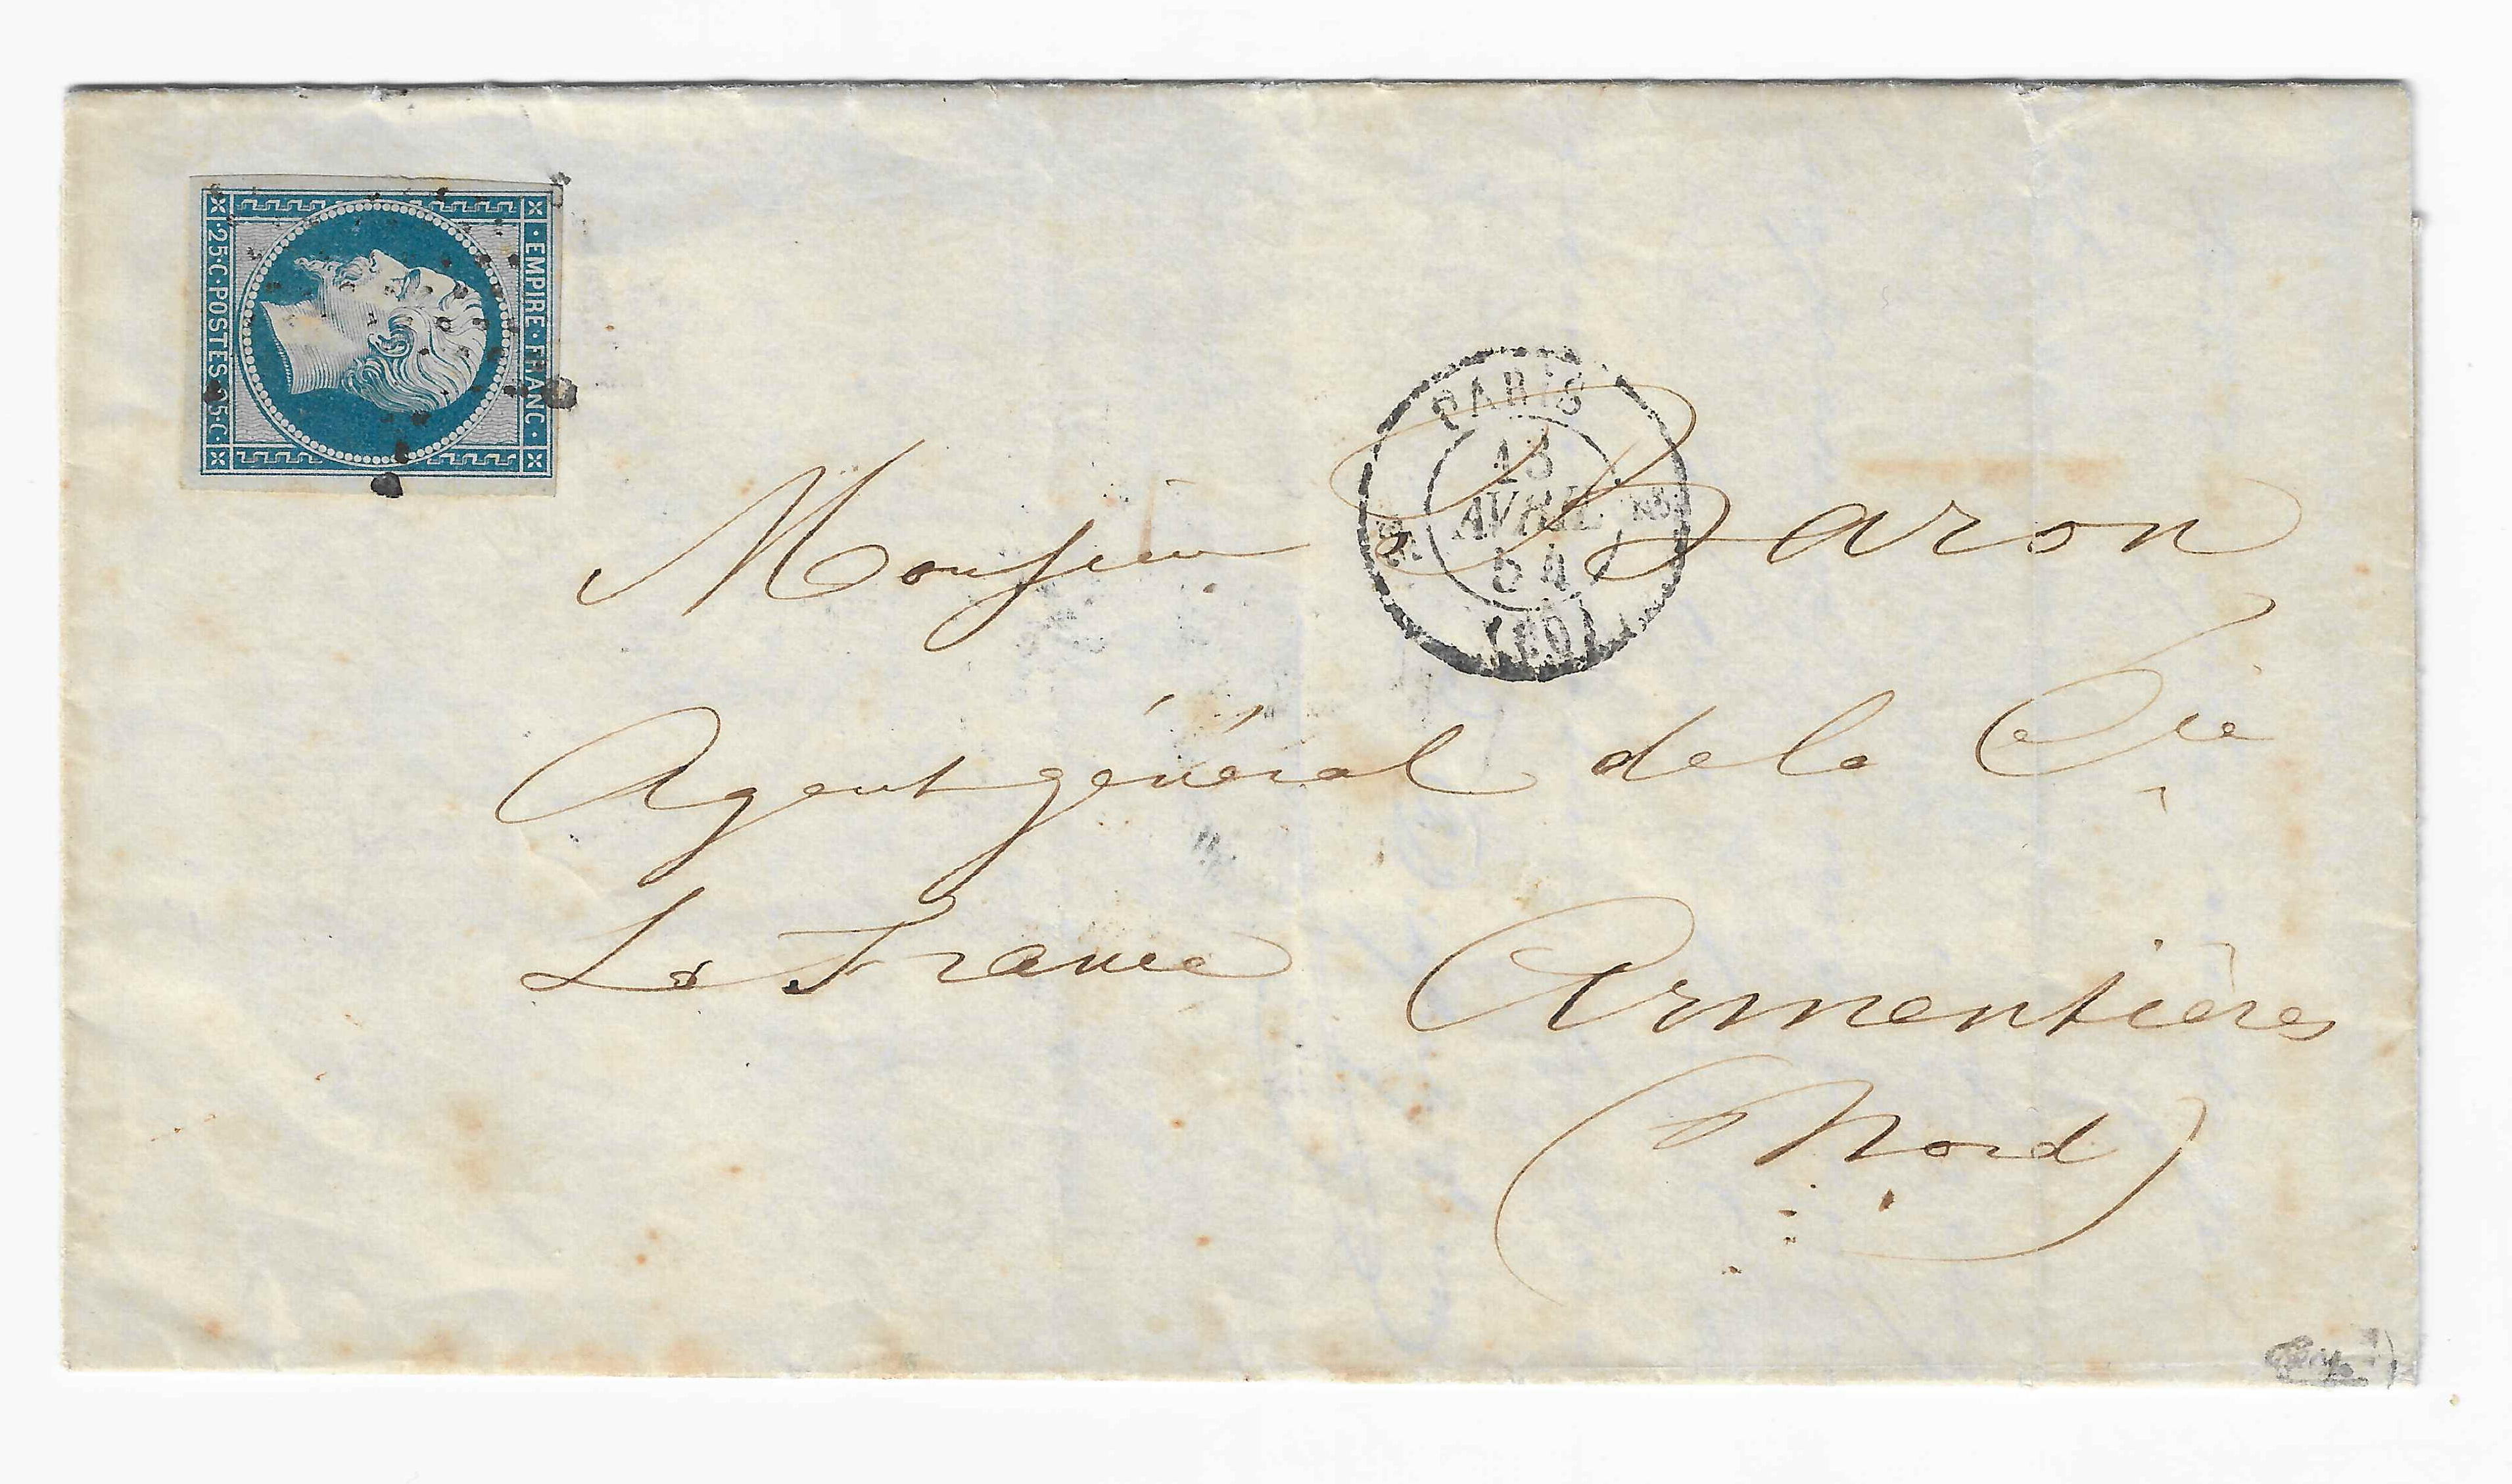 EMPIRE·FRANC·
25·C·POSTES·25·C·
PARIS
13
AVRIL
54
(60)
Monsieur Baron
Agent général de la Cie
La France
Armentières
(Nord)